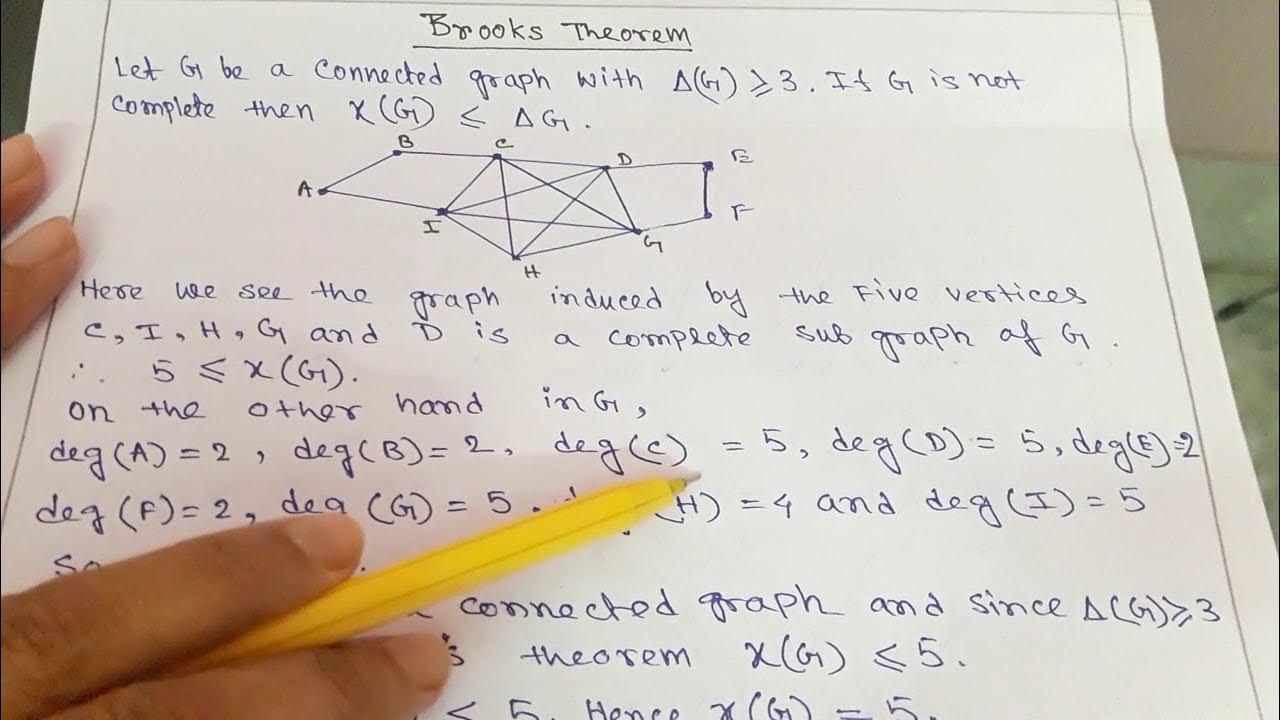 Brooks Theorem
Let G be a connected graph with Δ(G) ≥ 3. If G is not
complete then χ(G) ≤ ΔG.
B C D E
A
I G F
H
Here we see the graph induced by the Five vertices
C, I, H, G and D is a complete sub graph of G.
∴ 5 ≤ χ(G).
on the other hand in G,
deg(A) = 2, deg(B) = 2, deg(C) = 5, deg(D) = 5, deg(E) = 2
deg(F) = 2, deg(G) = 5. (H) = 4 and deg(I) = 5
So
connected graph and since Δ(G) ≥ 3
theorem χ(G) ≤ 5.
≤ 5. Hence χ(G) = 5.